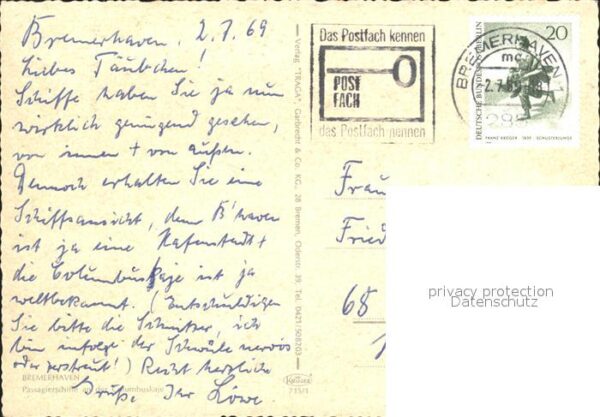 Bremerhaven, 2.7.69
Liebes Täubchen!
Schiffe haben Sie ja nun
wirklich genügend gesehen,
von innen + von außen.
Dennoch erhalten Sie eine
Schiffsansicht, denn B'haven
ist ja eine Hafenstadt +
die Columbuskaje ist ja
weltbekannt. (Entschuldigen
Sie bitte die Schnitzer, ich
bin infolge der Schwüle nervös
oder zerstreut!) Recht herzliche
Grüße Ihr Löwe
BREMERHAVEN
Passagierschiff an der Columbuskaje
Verlag "TRAGA", Garbrecht & Co. KG., 28 Bremen, Oderstr. 39, Tel. 0421/508203
Krüger
715/1
Das Postfach kennen
POST
FACH
das Postfach nennen
BREMERHAVEN 1
mc
-2.7.69-18
285
20
DEUTSCHE BUNDESPOST BERLIN
FRANZ KRÜGER SCHUSTERJUNGE
Frau
Fried
68
1
privacy protection
Datenschutz